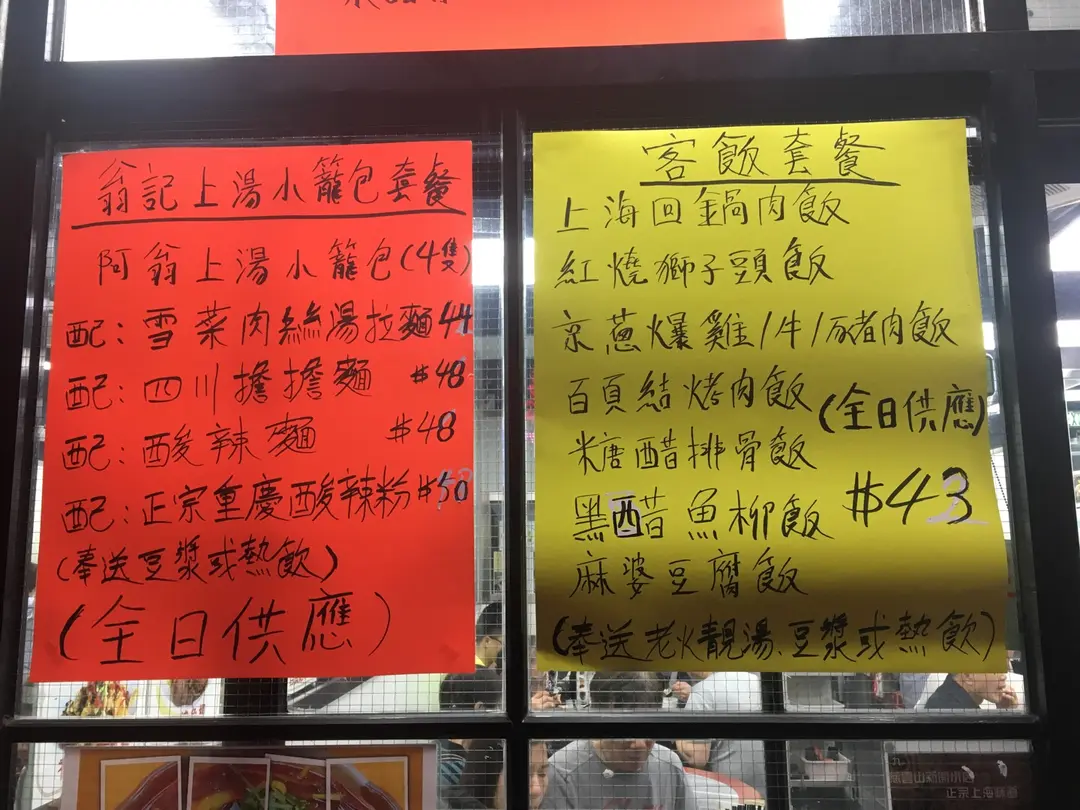 翁記上湯小籠包套餐
阿翁上湯小籠包(4隻)
配：雪菜肉絲湯拉麵44
配：四川擔擔麵 $48
配：酸辣麵 $48
配：正宗重慶酸辣粉$50
(奉送豆漿或熱飲)
(全日供應)
客飯套餐
上海回鍋肉飯
紅燒獅子頭飯
京蔥爆雞/牛/豬肉飯
百頁結烤肉飯
(全日供應)
糖醋排骨飯
黑醋魚柳飯
$43
麻婆豆腐飯
(奉送老火靚湯、豆漿或熱飲)
正宗上海